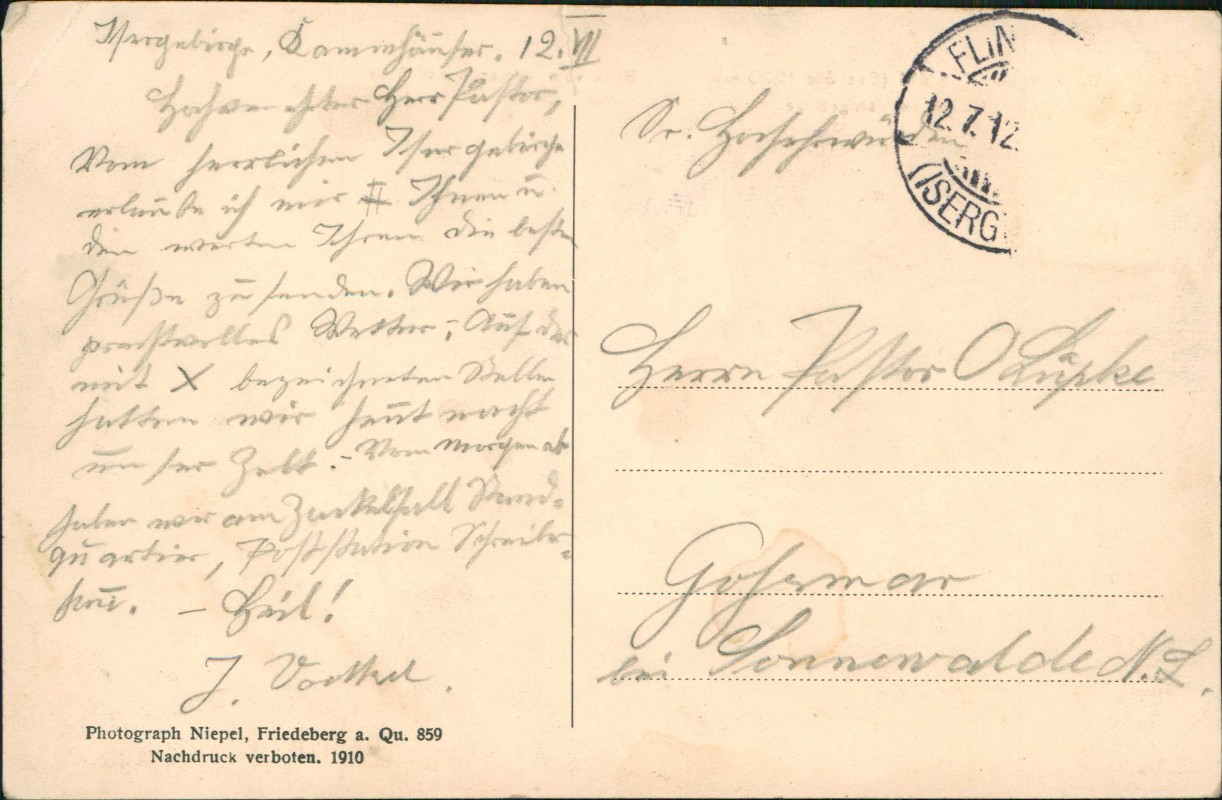 Isergebirge, Kammhäuser. 12.VII
Hochverehrter Herr Pastor,
Vom herrlichen Isergebirge
erlaube ich mir Ihnen u.
den werten Ihren die besten
Grüße zu senden. Wir haben
prachtvolles Wetter; Auf der
mit X bezeichneten Stelle
hatten wir heut nacht
unser Zelt. - Vom Morgen ab
haben wir am Zackelfall Stand-
quartier, Poststation Schreiber-
hau. - Heil!
J.
Photograph Niepel, Friedeberg a. Qu. 859
Nachdruck verboten. 1910
FLIN
12.7.12.
(ISERG
Sr. Hochehrwürden
Herrn Pastor O Lüpke
Gosmar
bei Sonnewalde N.L.